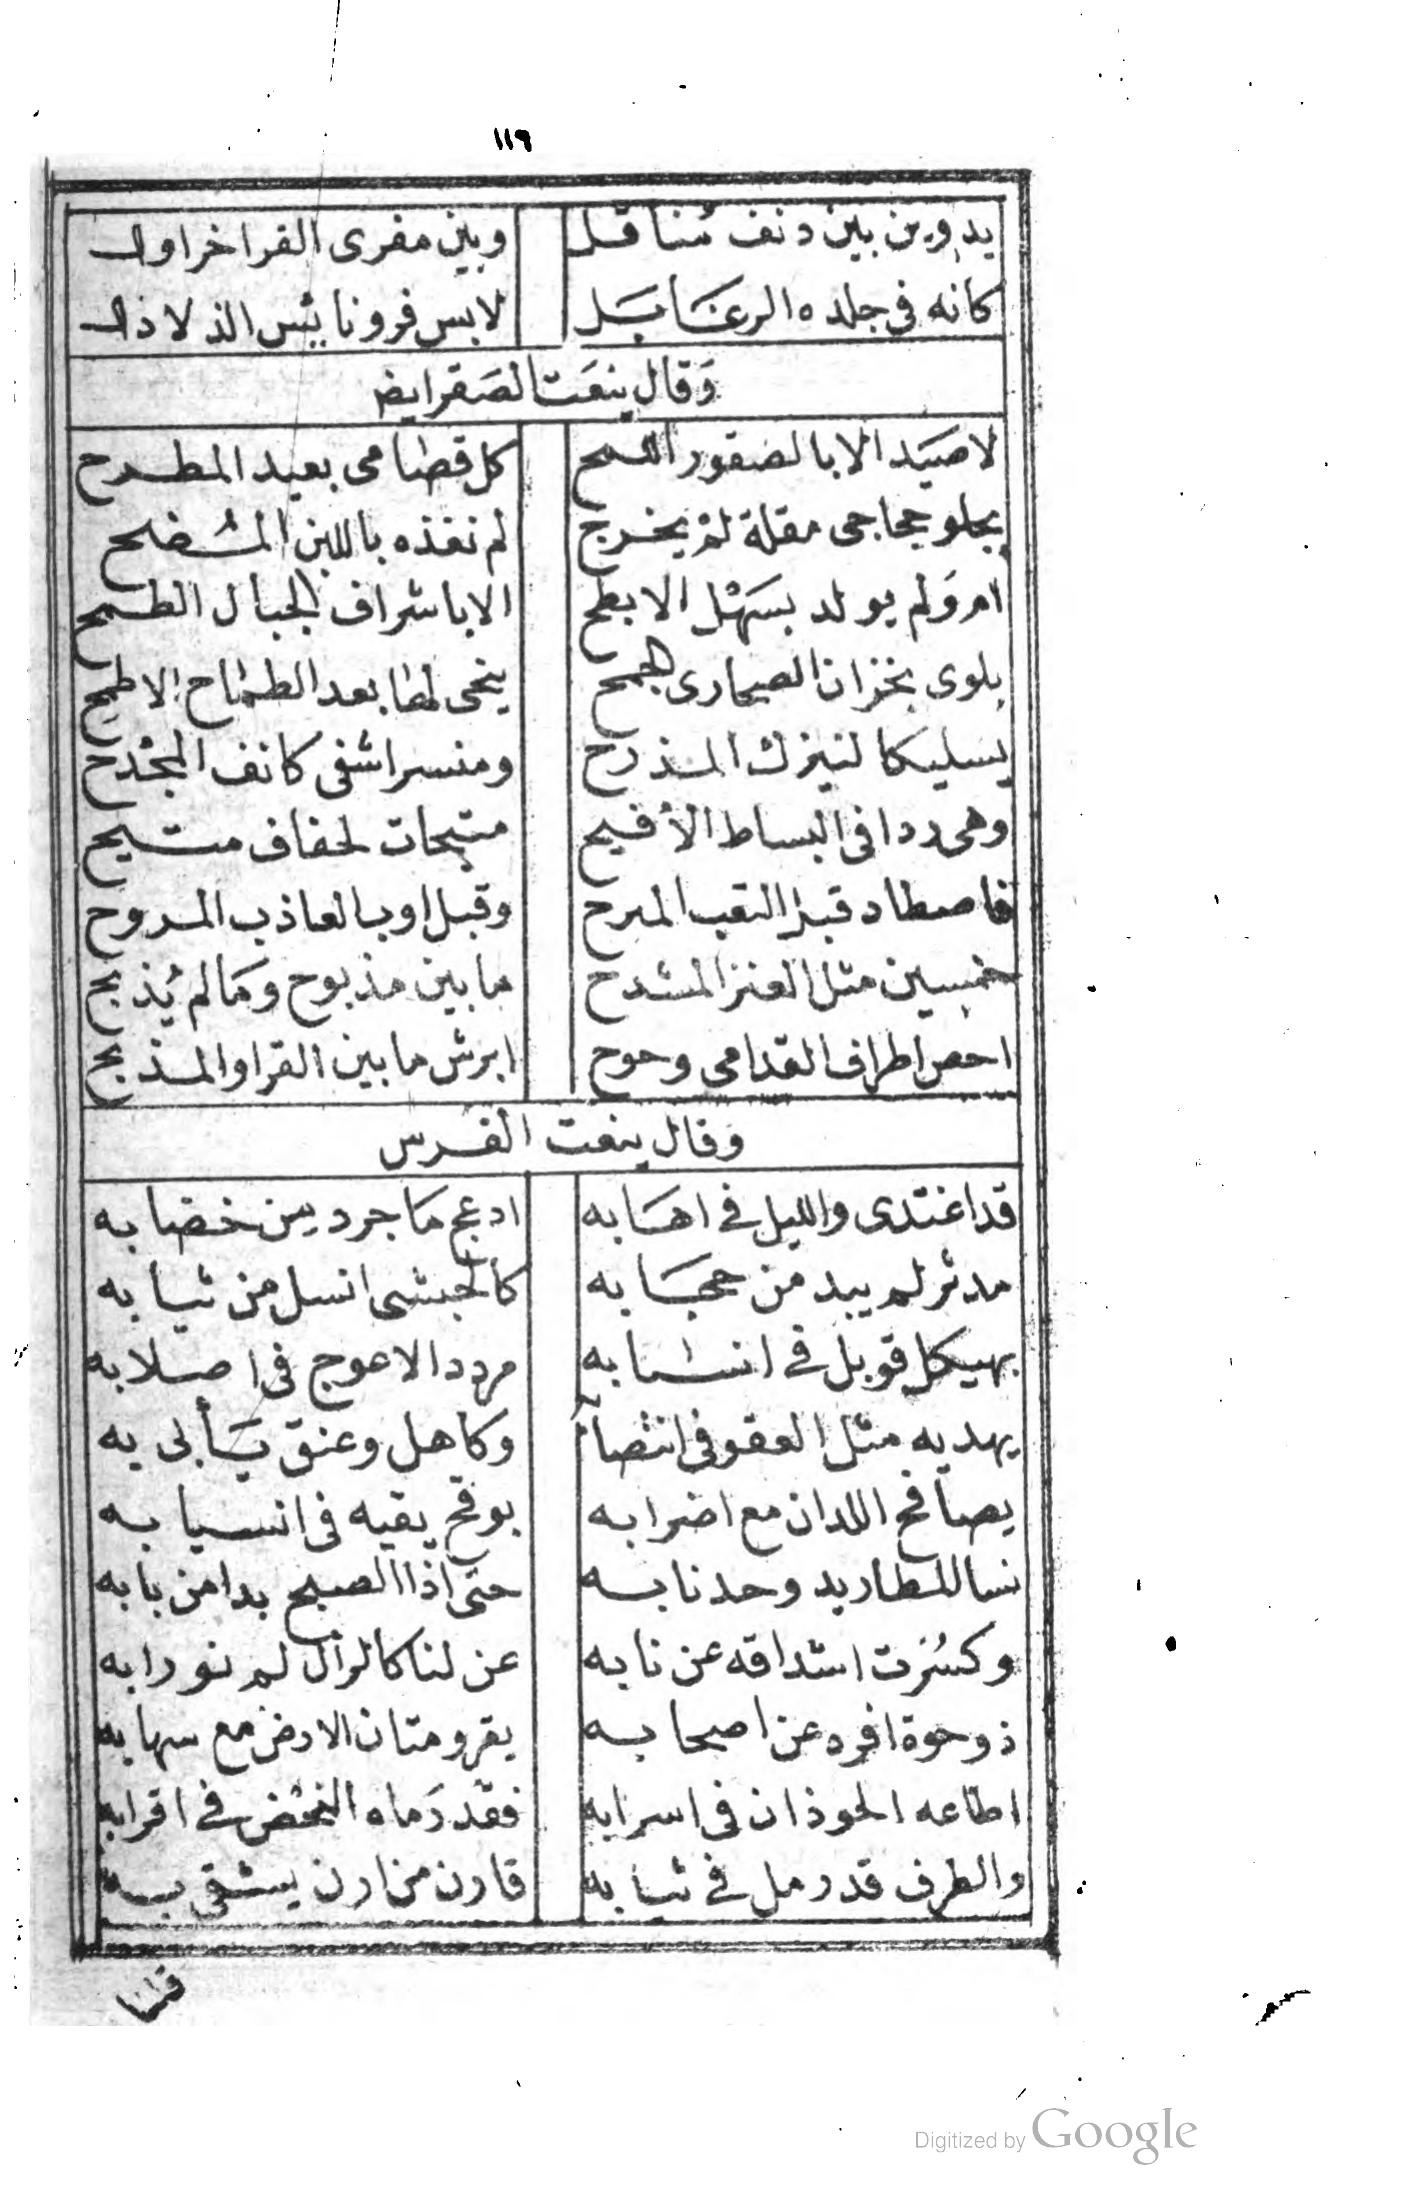 ١١٩
يدورن بين دنف مناقل وبين مفرى القرا خراول
كانه فى جلده الرعابيل لابس فرو نايس الذلاذل
وقال ينعت الصقر ايض
لا صيد الا بالصقور اللمح كل قطامى بعيد المطرح
يجلو حجاجى مقلة لم يخرج لم نغذه باللبن المضيح
ام ولم يولد بسهل الابطح الا باشراف الجبال الطمح
يلوى بخزان الصحارى الجمح ينحى لها بعد الطماح الاطمح
يسليكا لنيزك المذرح ومنسر اشفى كانف المجدح
وهى ردا فى البساط الأفيح متيحات لخفاف متيح
فاصطاد قبل التعب المبرح وقبل اوب العاذب المروح
خمسين مثل العنز المشدح ما بين مذبوح وما لم يذبح
احص اطراف القدامى وحوح ابرش ما بين القرا والمذبح
وقال ينعت الفرس
قد اغتدى والليل فى اهابه ادعج ما جرد من خضابه
مدثر لم يبد من حجابه كالحبشى انسل من ثيابه
بهيكل قوبل فى انسابه مردد الاعوج فى اصلابه
يهديه مثل العقو فى انتصا وكاهل وعنق يأبى به
يصافح اللدان مع اضرابه بوقح يقيه فى انسيابه
نسا للطاريد وحدنابه حتى اذا الصبح بدا من بابه
وكشرت اشداقه عن نابه عن لنا كالرأل لم نورابه
ذو حوة افره عن اصحابه يقرو متان الارض مع سهابه
اطاعه الحوذان فى اسرابه فقد رماه النحض فى اقرابه
والطرف قد زمل فى ثيابه قارن من ارن يشقى به
قلنا
Digitized by Google